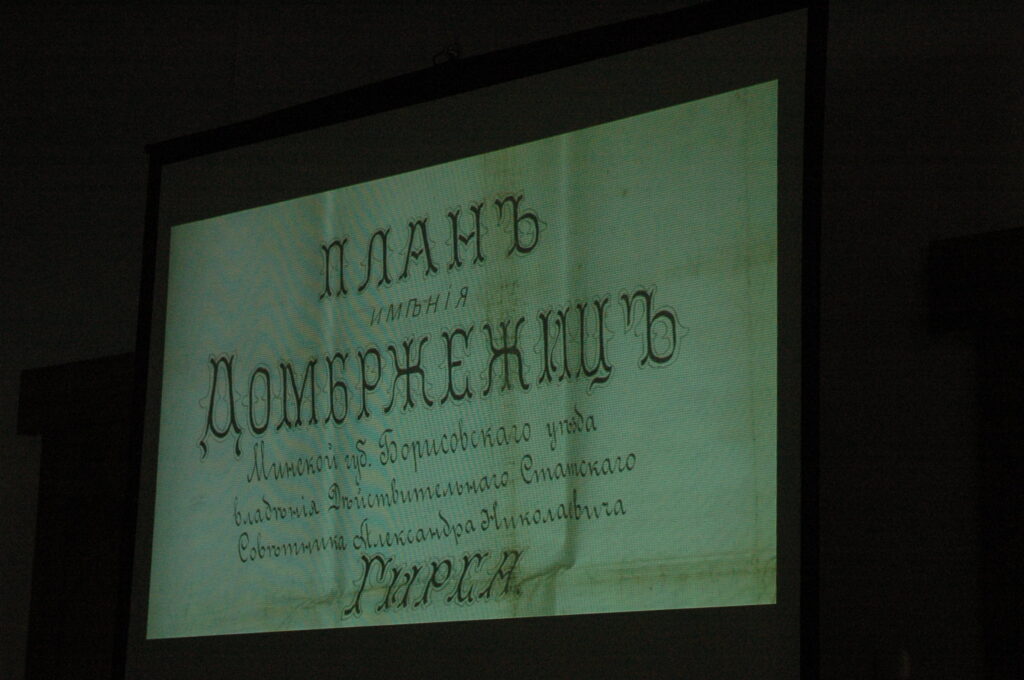 ПЛАНЪ
имѣнія
ДОМБРЖЕЖИЦЪ
Минской губ. Борисовскаго уѣзда
владѣнія Дѣйствительнаго Статскаго
Совѣтника Александра Николаевича
ГИРСА